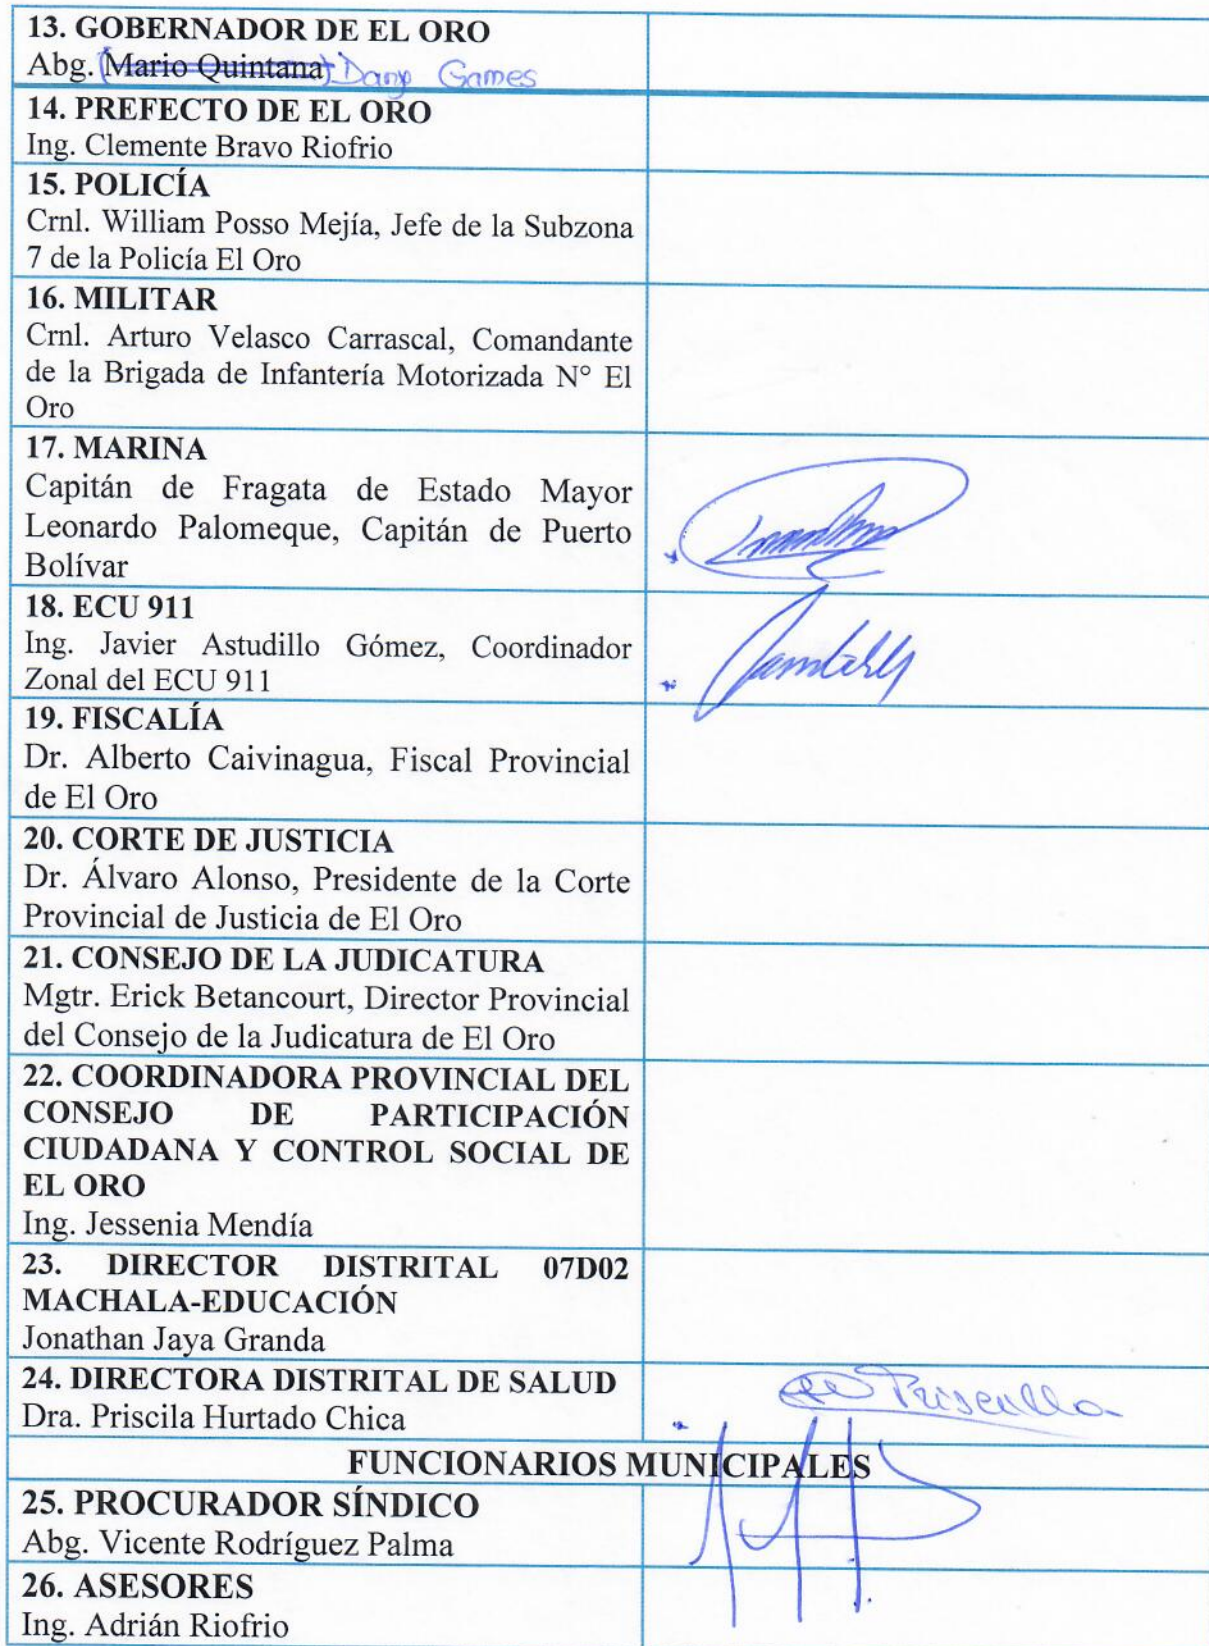 13. GOBERNADOR DE EL ORO
Abg. (Mario Quintana) Dany Games
14. PREFECTO DE EL ORO
Ing. Clemente Bravo Riofrio
15. POLICÍA
Crnl. William Posso Mejía, Jefe de la Subzona
7 de la Policía El Oro
16. MILITAR
Crnl. Arturo Velasco Carrascal, Comandante
de la Brigada de Infantería Motorizada N° El
Oro
17. MARINA
Capitán de Fragata de Estado Mayor
Leonardo Palomeque, Capitán de Puerto
Bolívar
18. ECU 911
Ing. Javier Astudillo Gómez, Coordinador
Zonal del ECU 911
19. FISCALÍA
Dr. Alberto Caivinagua, Fiscal Provincial
de El Oro
20. CORTE DE JUSTICIA
Dr. Álvaro Alonso, Presidente de la Corte
Provincial de Justicia de El Oro
21. CONSEJO DE LA JUDICATURA
Mgtr. Erick Betancourt, Director Provincial
del Consejo de la Judicatura de El Oro
22. COORDINADORA PROVINCIAL DEL
CONSEJO DE PARTICIPACIÓN
CIUDADANA Y CONTROL SOCIAL DE
EL ORO
Ing. Jessenia Mendía
23. DIRECTOR DISTRITAL 07D02
MACHALA-EDUCACIÓN
Jonathan Jaya Granda
24. DIRECTORA DISTRITAL DE SALUD
Dra. Priscila Hurtado Chica
FUNCIONARIOS MUNICIPALES
25. PROCURADOR SÍNDICO
Abg. Vicente Rodríguez Palma
26. ASESORES
Ing. Adrián Riofrio